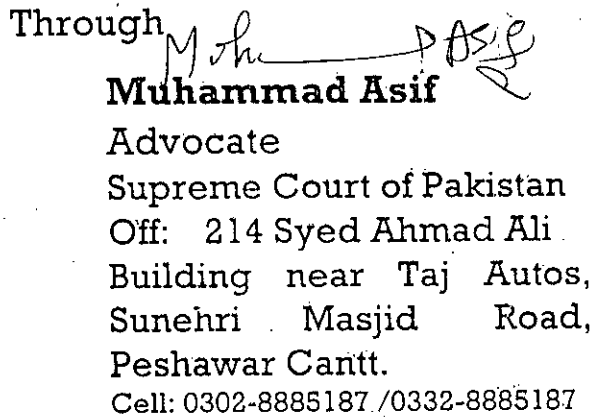 Through
Moh Asif
Muhammad Asif
Advocate
Supreme Court of Pakistan
Off: 214 Syed Ahmad Ali
Building near Taj Autos,
Sunehri Masjid Road,
Peshawar Cantt.
Cell: 0302-8885187 /0332-8885187